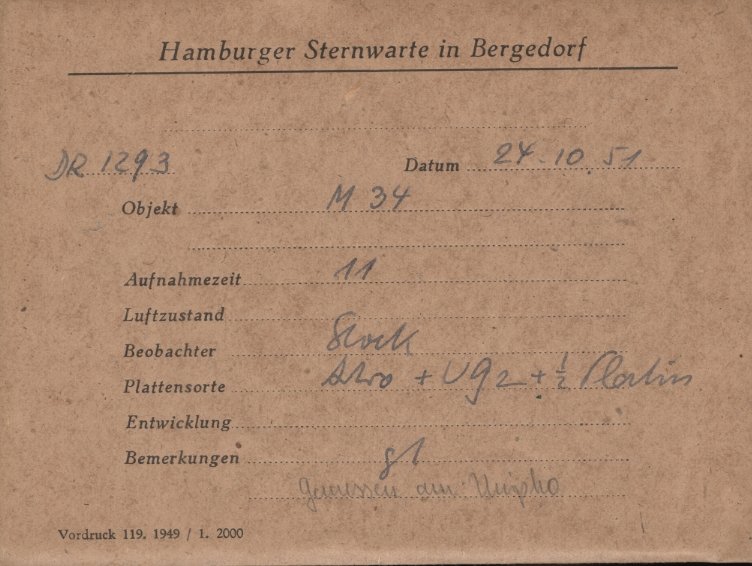 Hamburger Sternwarte in Bergedorf
DR 1293
Datum 24.10.51
Objekt M 34
Aufnahmezeit 11
Luftzustand
Beobachter Stock
Plattensorte + UG2 + ½ Platin
Entwicklung
Bemerkungen
Gemessen am
Vordruck 119. 1949 / 1. 2000